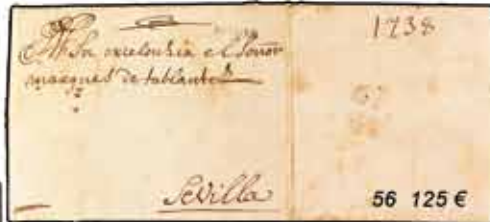 Su excelenhia el Señor
marques de tablantes
Sevilla
1738
56 125 €